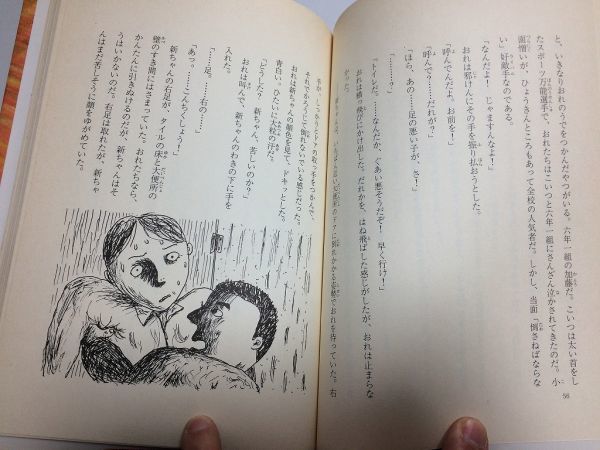 と、いきなりおれのうでをつかんだやつがいる。六年一組の加藤だ。こいつは太い首をし
たスポーツ万能選手で、おれたちはこいつと六年一組にさんざん泣かされてきたのだ。小
面憎いが、ひょうきんところもあって全校の人気者だ。しかし、当面「倒さねばならな
い」好敵手なのである。
「なんだよ！　じゃますんなよ！」
おれは邪けんにその手を振り払おうとした。
「呼んでんだよ。お前を！」
「呼んで？……だれが？」
「ほら、あの……足の悪い子が、さ！」
「………？」
「トイレだ。……なんだか、ぐあい悪そうだぞ！　早く行け！」
おれは横っ飛びにかけ出した。だれかを、はね飛ばした感じがしたが、おれは止まらな
かった。
便所のドアに倒れかかる姿勢でおれを待っていた。右
手が、しっかりとドアの取っ手をつかんで、
それでかろうじて倒れないでいる感じだった。
おれは新ちゃんの顔色を見て、ドキッとした。
青白い、ひたいに大粒の汗だ。
「どうした？　新ちゃん、苦しいのか？」
おれは叫んで、新ちゃんのわきの下に手を
入れた。
「……足。……右の……」
「あっ。……こんちくしょう！」
新ちゃんの右足が、タイルの床と大便所の
壁のすき間にはさまっていた。おれたちなら、
かんたんに引きぬけるのだが、新ちゃんはそ
うはいかないのだ。右足は取れたが、新ちゃ
んはまだ苦しそうに顔をゆがめていた。
56